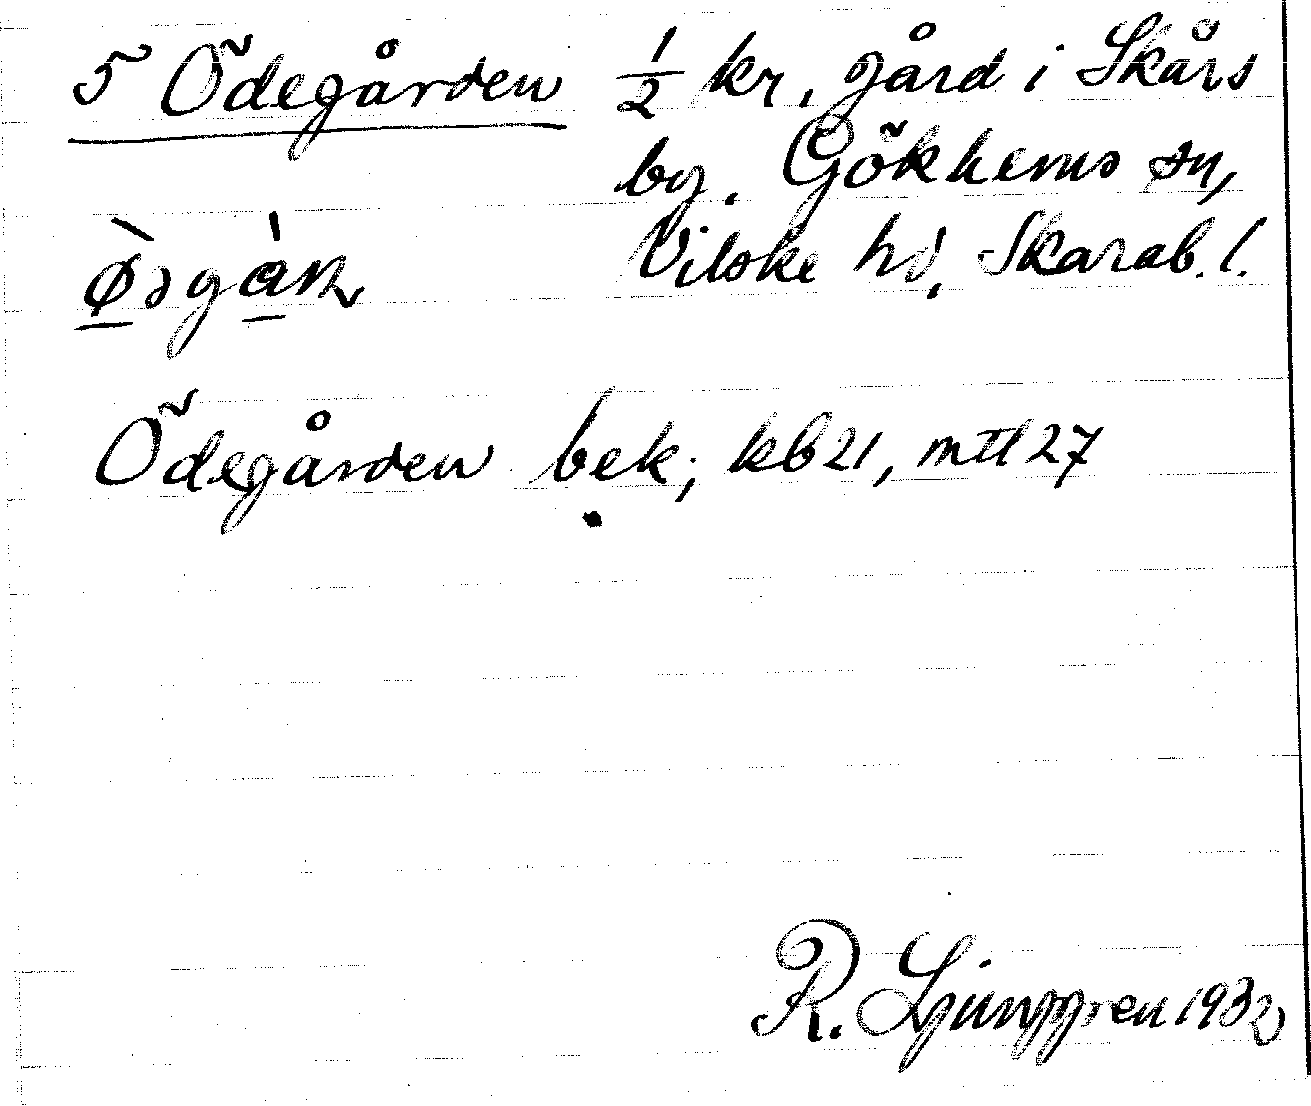 5 Ödegården 1/2 kr, gård i Skårs
by. Gökhems sn,
Vilske hd, Skarab. l.
Ödegården bek; kb 21, mtl 27
R. Ljunggren 1932